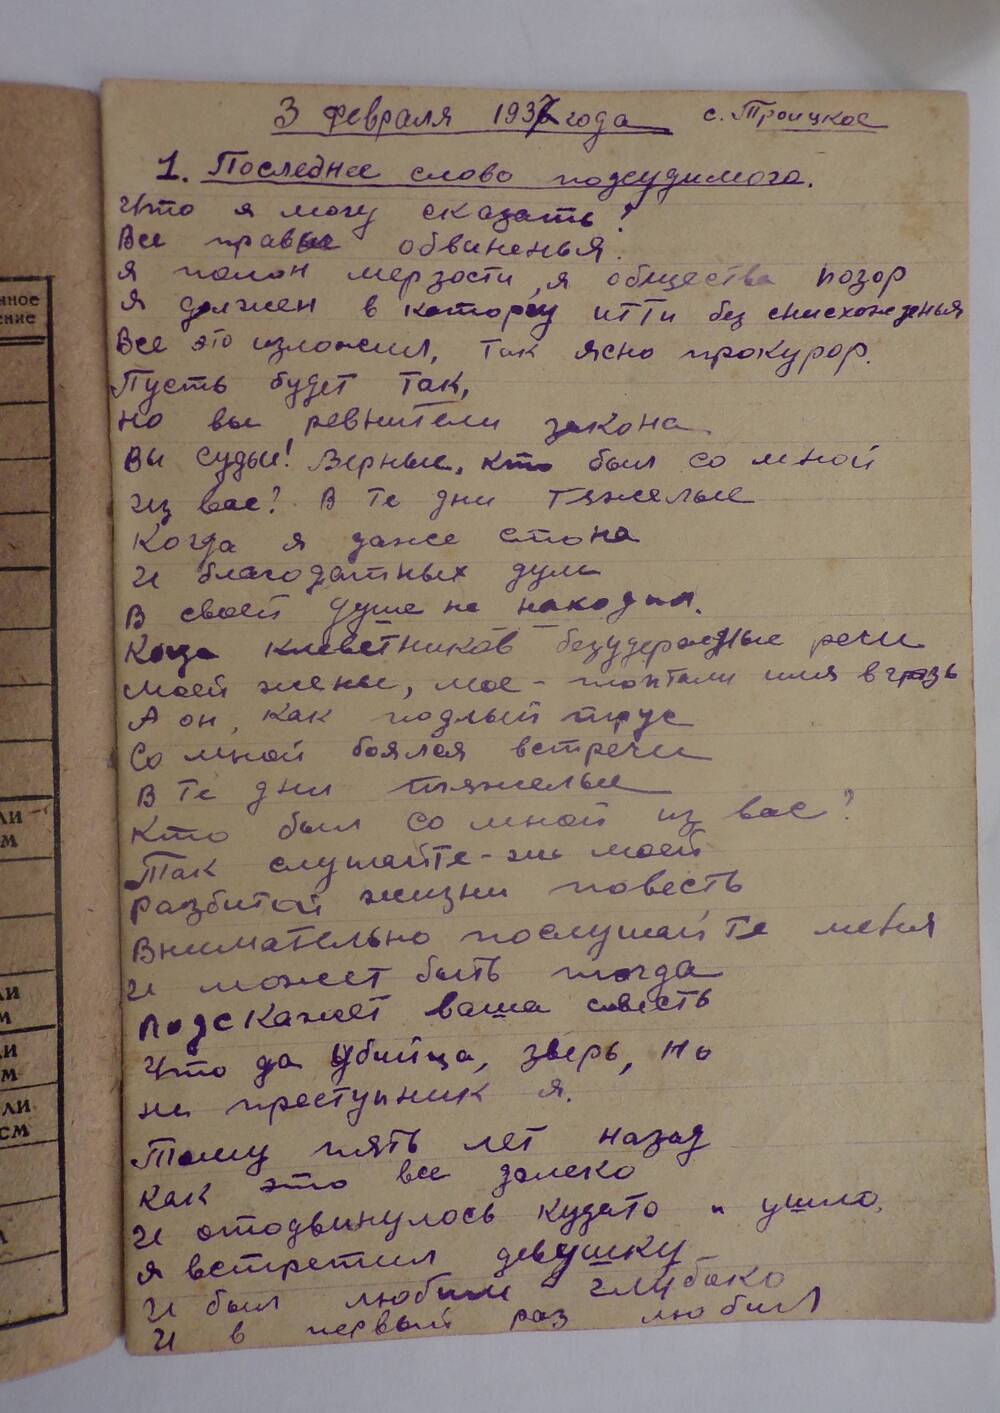 3 февраля 1937 года с. Троицкое
1. Последнее слово подсудимого.
Что я могу сказать?
Все правы обвиненья.
Я полон мерзости, я общества позор
Я должен в каторгу итти без снисхожденья
Все это изложил, так ясно прокурор.
Пусть будет так,
но вы ревнители закона
Вы судьи! Верные, кто был со мной
Из вас? В те дни тяжелые
Когда я даже стона
И благодатных дум
В своей душе не находил.
Когда клеветников безудержные речи
Моей жены, мое - топтали имя в грязь
А он, как подлый трус
Со мной боялся встречи
В те дни тяжелые
Кто был со мной из вас?
Так слушайте-же моей
разбитой жизни повесть
Внимательно послушайте меня
И может быть тогда
подскажет ваша совесть
Что да убийца, зверь, но
не преступник я.
Тому пять лет назад
Как это все далеко
И отодвинулось кудато и ушло.
Я встретил девушку
И был любим глубоко
И в первый раз любил
нное
ение
ЛИ
М
ЛИ
М
ЛИ
М
ЛИ
СМ